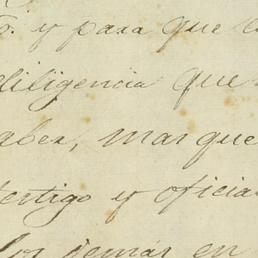 y para que
diligencia que
aber, mas que
testigo y oficia
los demás en